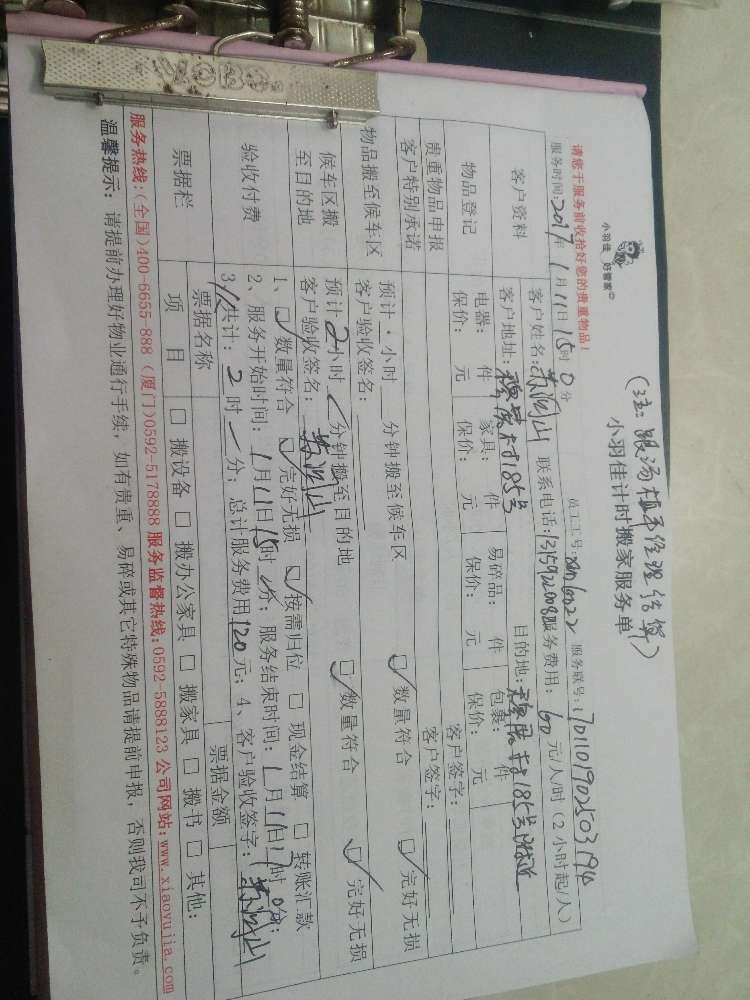 (注:跟汤植平经理结算)
小羽佳计时搬家服务单
小羽佳 好管家
请您于服务前收拾好您的贵重物品!
员工工号:xm6022 服务联号:1701101902503194
服务时间:2017年1月11日15时0分
服务费用:60元/人/时(2小时起/人)
客户资料
客户姓名: 联系电话:13159220082
客户地址: 村185号
目的地: 村185号附近
物品登记
电器: 件 家具: 件 易碎品: 件 包裹: 件
保价: 元 保价: 元 保价: 元 保价: 元
贵重物品申报 客户签字:
客户特别承诺 客户签字:
物品搬至候车区
预计 小时 分钟搬至候车区 数量符合 完好无损
客户验收签名:
候车区搬至目的地
预计2小时 分钟搬至目的地 数量符合 完好无损
客户验收签名:
验收付费
1、 数量符合 完好无损 按需归位 现金结算 转账汇款
2、服务开始时间:1月11日15时 分;服务结束时间:1月11日17时0分;
3、共计:2时 分;总计服务费用120元;4、客户验收签字:
票据栏
票据名称 票据金额
项目 搬设备 搬办公家具 搬家具 搬书 其他:
服务热线:(全国)400-6655-888 (厦门)0592-5178888 服务监督热线:0592-5888123 公司网站:www.xiaoyujia.com
温馨提示:请提前办理好物业通行手续,如有贵重、易碎或其它特殊物品请提前申报,否则我司不予负责。